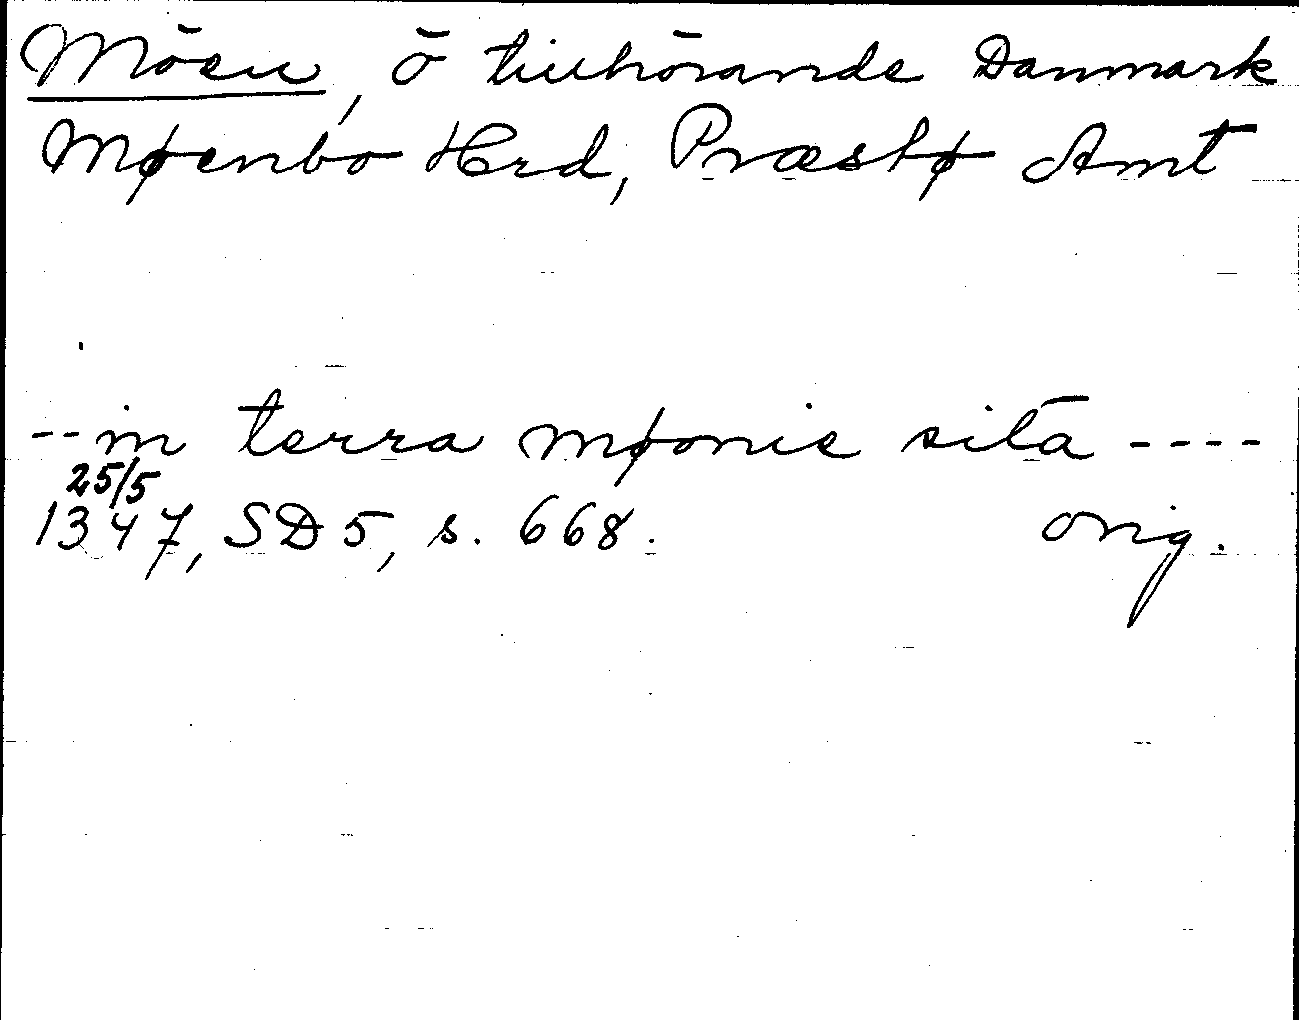 Möen, ö tillhörande Danmark
Møenbo Hrd, Præstø Amt
-- in terra møonie sitā ----
25/5
1347, SD 5, s. 668. orig.